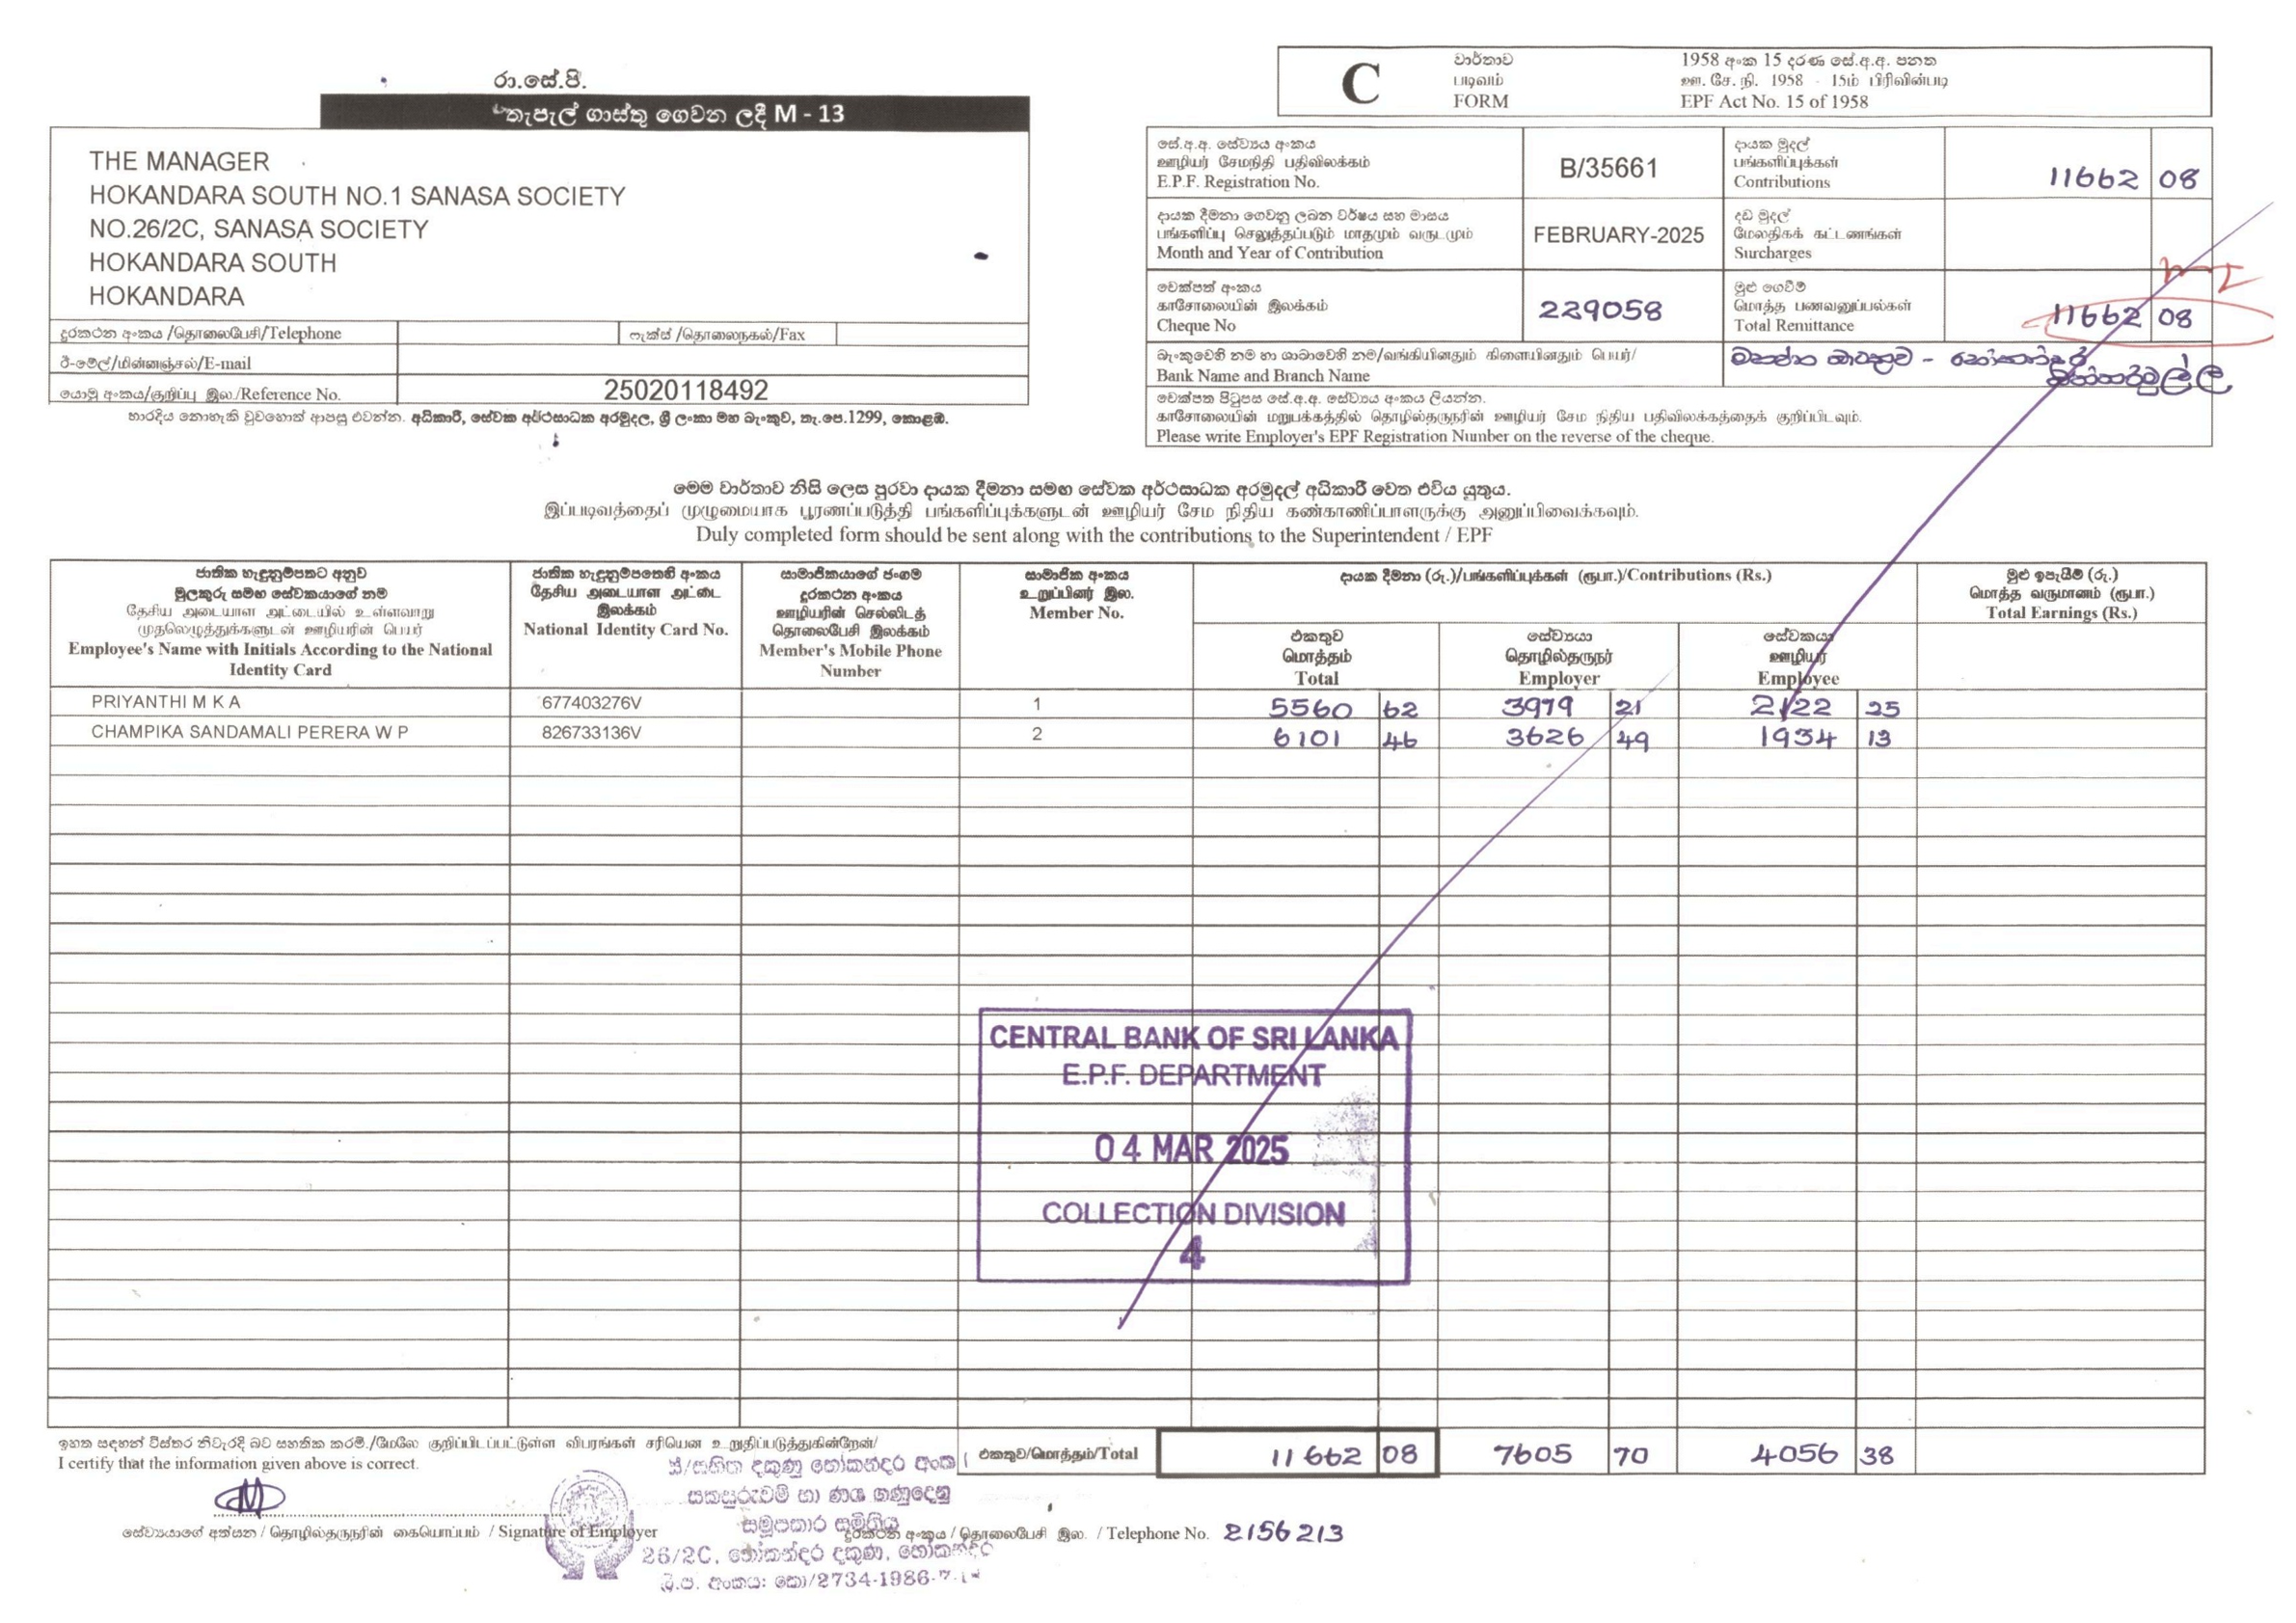 රා.සේ.පි.
තැපැල් ගාස්තු ගෙවන ලදී M - 13
THE MANAGER
HOKANDARA SOUTH NO.1 SANASA SOCIETY
NO.26/2C, SANASA SOCIETY
HOKANDARA SOUTH
HOKANDARA
දුරකථන අංකය /தொலைபேசி/Telephone ෆැක්ස් /தொலைநகல்/Fax
ඊ-මේල්/மின்னஞ்சல்/E-mail
යොමු අංකය/குறிப்பு இல./Reference No. 25020118492
භාරදිය නොහැකි වුවහොත් ආපසු එවන්න. අධිකාරී, සේවක අර්ථසාධක අරමුදල, ශ්‍රී ලංකා මහ බැංකුව, තැ.පෙ.1299, කොළඹ.
C
වාර්තාව
படிவம்
FORM
1958 අංක 15 දරණ සේ.අ.අ. පනත
ஊ. சே. நி. 1958 - 15ம் பிரிவின்படி
EPF Act No. 15 of 1958
සේ.අ.අ. සේව්‍යය අංකය
ஊழியர் சேமநிதி பதிவிலக்கம்
E.P.F. Registration No.
B/35661
දායක මුදල්
பங்களிப்புக்கள்
Contributions
11662 08
දායක දීමනා ගෙවනු ලබන වර්ෂය සහ මාසය
பங்களிப்பு செலுத்தப்படும் மாதமும் வருடமும்
Month and Year of Contribution
FEBRUARY-2025
දඩ මුදල්
மேலதிகக் கட்டணங்கள்
Surcharges
චෙක්පත් අංකය
காசோலையின் இலக்கம்
Cheque No
229058
මුළු ගෙවීම්
மொத்த பணவனுப்பல்கள்
Total Remittance
11662 08
බැංකුවෙහි නම හා ශාඛාවෙහි නම/வங்கியினதும் கிளையினதும் பெயர்/
Bank Name and Branch Name
චෙක්පත පිටුපස සේ.අ.අ. සේව්‍යය අංකය ලියන්න.
காசோலையின் மறுபக்கத்தில் தொழில்தருநரின் ஊழியர் சேம நிதிய பதிவிலக்கத்தைக் குறிப்பிடவும்.
Please write Employer's EPF Registration Number on the reverse of the cheque.
මෙම වාර්තාව නිසි ලෙස පුරවා දායක දීමනා සමඟ සේවක අර්ථසාධක අරමුදල් අධිකාරී වෙත එවිය යුතුය.
இப்படிவத்தைப் முழுமையாக பூரணப்படுத்தி பங்களிப்புக்களுடன் ஊழியர் சேம நிதிய கண்காணிப்பாளருக்கு அனுப்பிவைக்கவும்.
Duly completed form should be sent along with the contributions to the Superintendent / EPF
ජාතික හැඳුනුම්පතට අනුව
මුලකුරු සමඟ සේවකයාගේ නම
தேசிய அடையாள அட்டையில் உள்ளவாறு
முதலெழுத்துக்களுடன் ஊழியரின் பெயர்
Employee's Name with Initials According to the National
Identity Card
ජාතික හැඳුනුම්පතෙහි අංකය
தேசிய அடையாள அட்டை
இலக்கம்
National Identity Card No.
සාමාජිකයාගේ ජංගම
දුරකථන අංකය
ஊழியரின் செல்லிடத்
தொலைபேசி இலக்கம்
Member's Mobile Phone
Number
සාමාජික අංකය
உறுப்பினர் இல.
Member No.
දායක දීමනා (රු.)/பங்களிப்புக்கள் (ரூபா.)/Contributions (Rs.)
එකතුව
மொத்தம்
Total
සේව්‍යයා
தொழில்தருநர்
Employer
සේවකයා
ஊழியர்
Employee
මුළු ඉපැයීම් (රු.)
மொத்த வருமானம் (ரூபா.)
Total Earnings (Rs.)
PRIYANTHI M K A 677403276V 1 5560 62 3979 21 2122 25
CHAMPIKA SANDAMALI PERERA W P 826733136V 2 6101 46 3626 49 1934 13
CENTRAL BANK OF SRI LANKA
E.P.F. DEPARTMENT
04 MAR 2025
COLLECTION DIVISION
4
ඉහත සඳහන් විස්තර නිවැරදි බව සහතික කරමි./மேலே குறிப்பிடப்பட்டுள்ள விபரங்கள் சரியென உறுதிப்படுத்துகின்றேன்/
I certify that the information given above is correct.
එකතුව/மொத்தம்/Total 11662 08 7605 70 4056 38
සී/සහිත දකුණු හෝකන්දර අංක 1
සකසුරුවම් හා ණය ගණුදෙනු
සමුපකාර සමිතිය
26/2C, හෝකන්දර දකුණ, හෝකන්දර
ලි.ප. අංකය: කො/2734-1986.7.
සේව්‍යයාගේ අත්සන / தொழில்தருநரின் கையொப்பம் / Signature of Employer
දුරකථන අංකය / தொலைபேசி இல. / Telephone No. 2156213